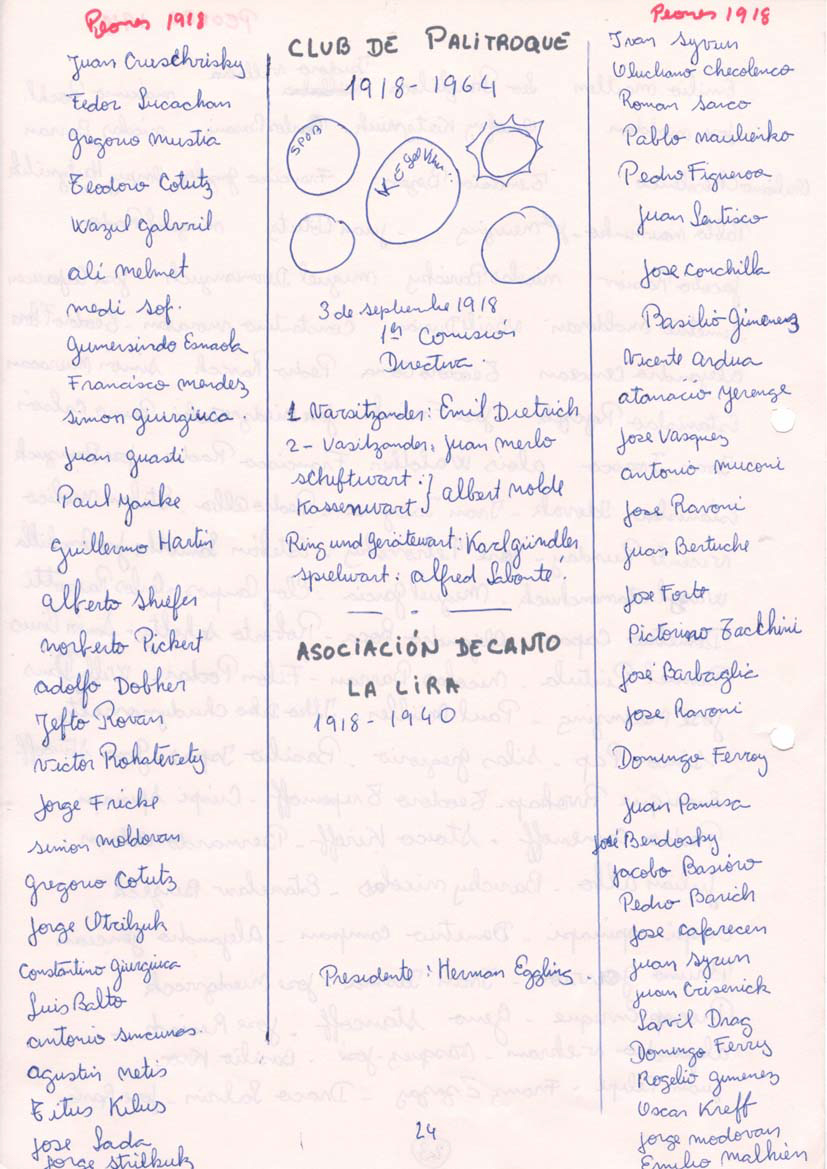 Peones 1918
Juan Cruschrisky
Fedor Sucachan
Gregorio Mustia
Teodoro Cotutz
Wazul Gabvril
Ali Melmet
Medi Sof.
Gumersindo Esnaola
Francisco Mendez
Simon Giurgiuca.
Juan Guasti
Paul Yanke
Guillermo Hartin
Alberto Shiefer
Norberto Pickert
Adolfo Dobher
Jefto Rovan
Victor Rohatevetz
Jorge Fricke
Simion Moldovan
Gregorio Cotutz
Jorge Utrilzuk
Constantino Giurgiuca
Luis Balto
Antonio
Agustin Metis
Titus Kilus
Jose Sada
Jorge Strilkuk
CLUB DE PALITROQUE
1918-1964
SPOB
3 de septiembre 1918
1ra Comisión
Directiva.
1 Varsitzander: Emil Dietrich
2- Vasitzander: Juan Merlo
Schiftwart:
Kassenwart } Albert Nolde
Ring und Gerätewart: Karl Gündler
Spielwart: Alfred Laborte.
ASOCIACIÓN DE CANTO
LA LIRA
1918-1940
Presidente: Herman Eggling.
24
Peones 1918
Ivan Syrun
Checolenco
Roman Sarco
Pablo Naulieiko
Pedro Figueroa
Juan Sentisco
Jose Conchilla
Basilio Gimenez
Vicente Ardua
Atanacio Yerenge
Jose Vasquez
Antonio Muconi
Jose Ravoni
Juan Bertuche
Jose Forto
Pictorino Zacchini
José Barbaglia
Jose Ravoni
Domingo Ferroy
Juan Panusa
José Berdosky
Jacobo Basiow
Pedro Barich
Jose Cafarecen
Juan Syrun
Juan Crisenick
Savil Drag
Domingo Ferruy
Rogelio Gimenez
Oscar Kreff
Jorge Modovan
Emilio Malhien